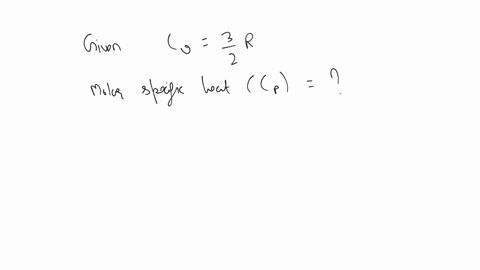 Given Cv = 3/2 R
Molar specific heat (Cp) = ?